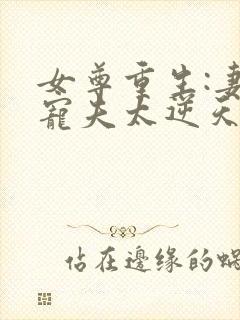 女尊重生:妻
寵夫太逆天
佔在邊緣的蝸